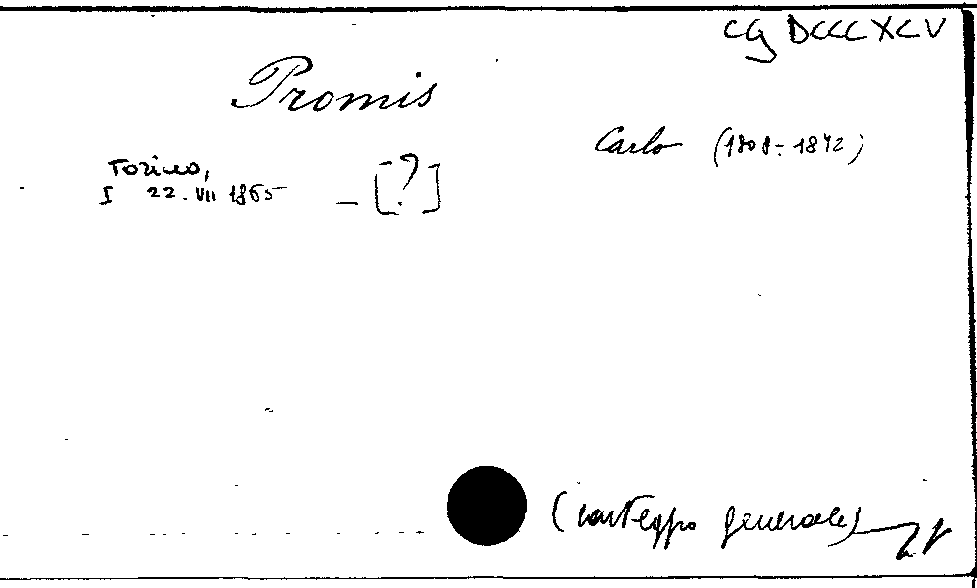 CG DCCCXCV
Promis
Carlo (1808÷1872)
Torino,
I 22.VII 1865 – [?]
(carteggio generale)